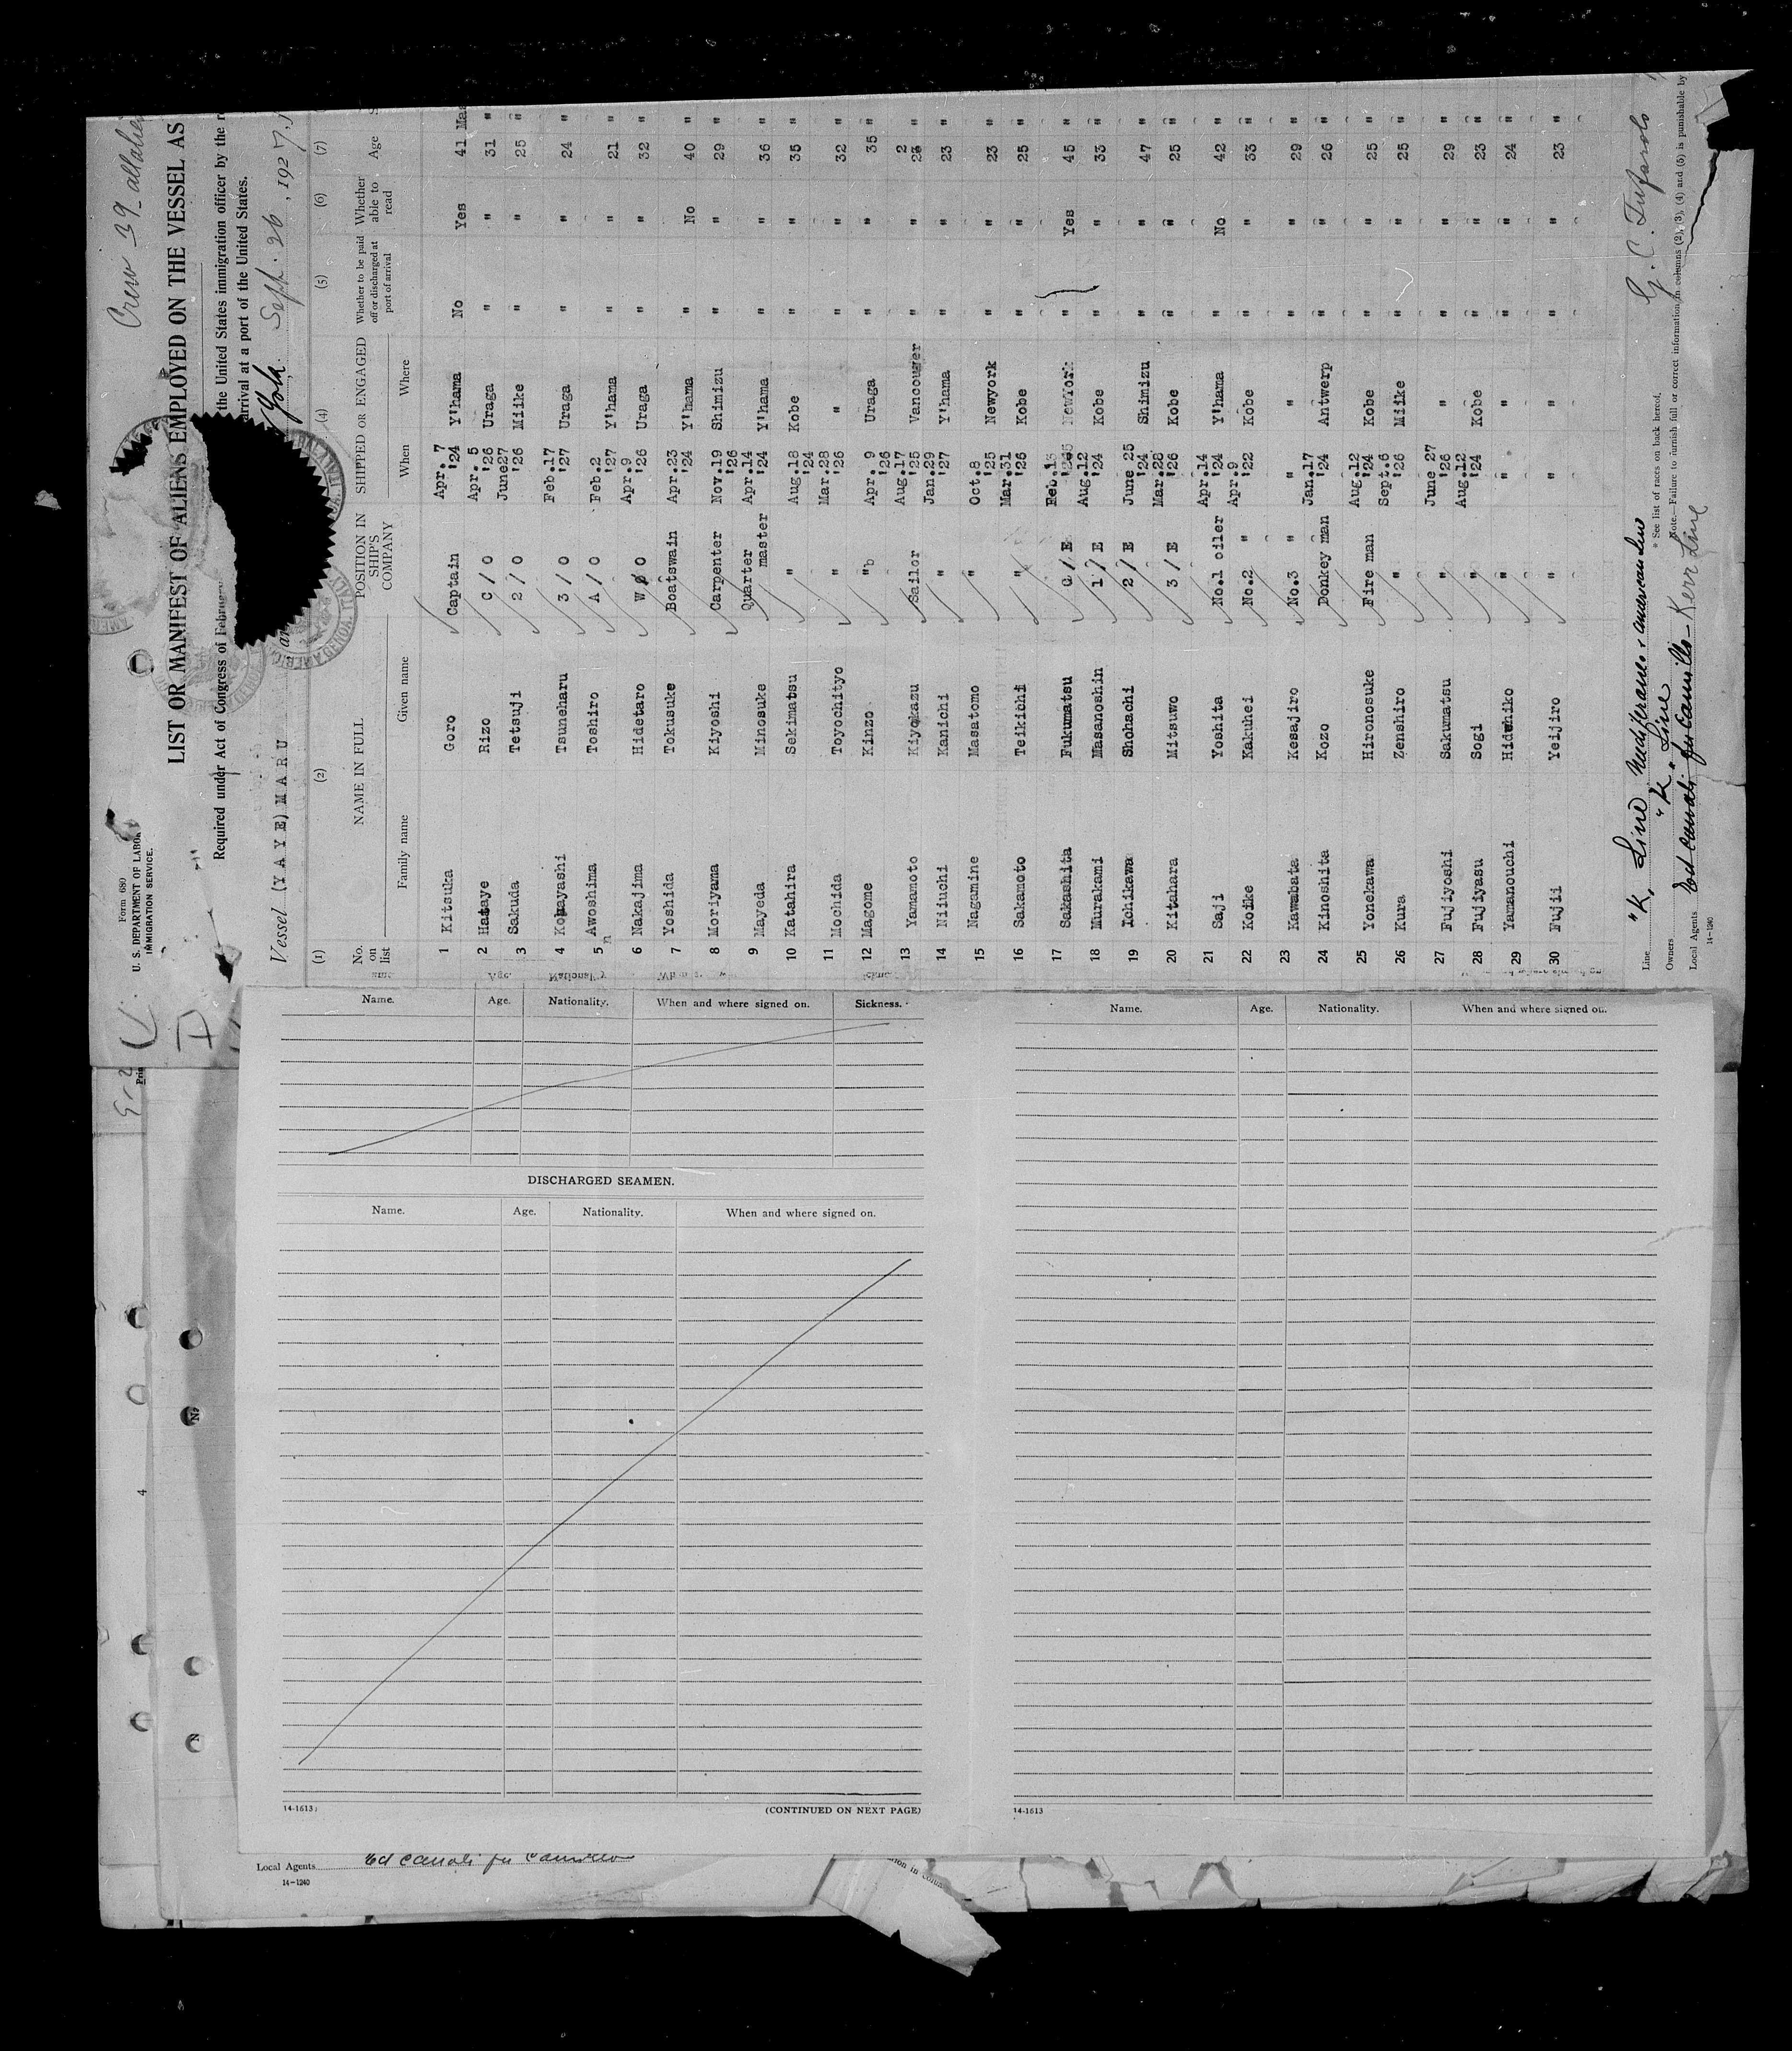 Crew 39
Form 680
U. S. DEPARTMENT OF LABOR
IMMIGRATION SERVICE.
LIST OR MANIFEST OF ALIENS EMPLOYED ON THE VESSEL AS
Required under Act of Congress of
the United States immigration officer by the
arrival at a port of the United States.
Vessel (YAYE) MARU
York, Sept. 26, 1927,
(1) (2) (4) (5) (6) (7)
No. on list NAME IN FULL POSITION IN SHIP'S COMPANY SHIPPED OR ENGAGED Whether to be paid off or discharged at port of arrival Whether able to read Age
Family name Given name When Where
1 Kitsuka Goro Captain Apr. 7 '24 Y'hama No Yes 41
2 Hataye Rizo C / O Apr. 5 '26 Uraga " " 31 "
3 Sakuda Tetsuji 2 / O June27 '26 Miike " " 25 "
4 Kobayashi Tsuneharu 3 / O Feb.17 '27 Uraga " " 24 "
5 Awoshima Toshiro A / O Feb.2 '27 Y'hama " " 21 "
6 Nakajima Hidetaro W / O Apr.9 '26 Uraga " " 32 "
7 Yoshida Tokusuke Boatswain Apr.23 '24 Y'hama " No 40 "
8 Moriyama Kiyoshi Carpenter Nov.19 '26 Shimizu " " 29 "
9 Mayeda Minosuke Quarter master Apr.14 '24 Y'hama " " 36 "
10 Katahira Sekimatsu " Aug.18 '24 Kobe " " 35 "
11 Mochida Toyochityo " Mar.28 '26 " " " 32 "
12 Magome Kinzo " Apr. 9 '26 Uraga " " 35 "
13 Yamamoto Kiyokazu Sailor Aug.17 '25 Vancouger " " 2 "
14 Niiuchi Kanichi " Jan.29 '27 Y'hama " " 23 "
15 Nagamine Masatomo " Oct.8 '25 Newyork " " 23 "
16 Sakamoto Teikichi " Mar.31 '26 Kobe " " 25 "
17 Sakashita Fukumatsu C / E Feb.13 Newyork " Yes 45 "
18 Murakami Masanoshin 1 / E Aug.12 '24 Kobe " " 33 "
19 Ichikawa Shohachi 2 / E June 25 '24 Shimizu " " 47 "
20 Kitahara Mitsuwo 3 / E Mar.28 '26 Kobe " " 25 "
21 Saji Yoshita No.1 oiler Apr.14 '24 Y'hama " No 42 "
22 Koike Kakuhei No.2 " Apr.9 '22 Kobe " " 33 "
23 Kawabata Kesajiro No.3 " " " " " 29 "
24 Kinoshita Kozo Donkey man Jan.17 '24 Antwerp " " 26 "
25 Yonekawa Hironosuke Fire man Aug.12 '24 Kobe " " 25 "
26 Kura Zenshiro " Sept.6 '26 Miike " " 25 "
27 Fujiyoshi Sakumatsu " June 27 '26 " " " 29 "
28 Fujiyasu Sogi " Aug.12 '24 Kobe " " 23 "
29 Yamanouchi Hidehiko " " " " " 24 "
30 Fujii Yeijiro " " " " " 23 "
Line "K" Line Mediterranee & American Line
Owners "K" Line
Local Agents Ed Canali fu Camillo - Kerr Line
14-1240
* See list of races on back hereof.
Note.—Failure to furnish full or correct information in columns (2), (3), (4) and (5) is punishable by
Name. Age. Nationality. When and where signed on. Sickness.
DISCHARGED SEAMEN.
Name. Age. Nationality. When and where signed on.
14-1613
(CONTINUED ON NEXT PAGE)
Name. Age. Nationality. When and where signed on.
14-1613
4
Local Agents Ed Canali fu Camillo
14-1240